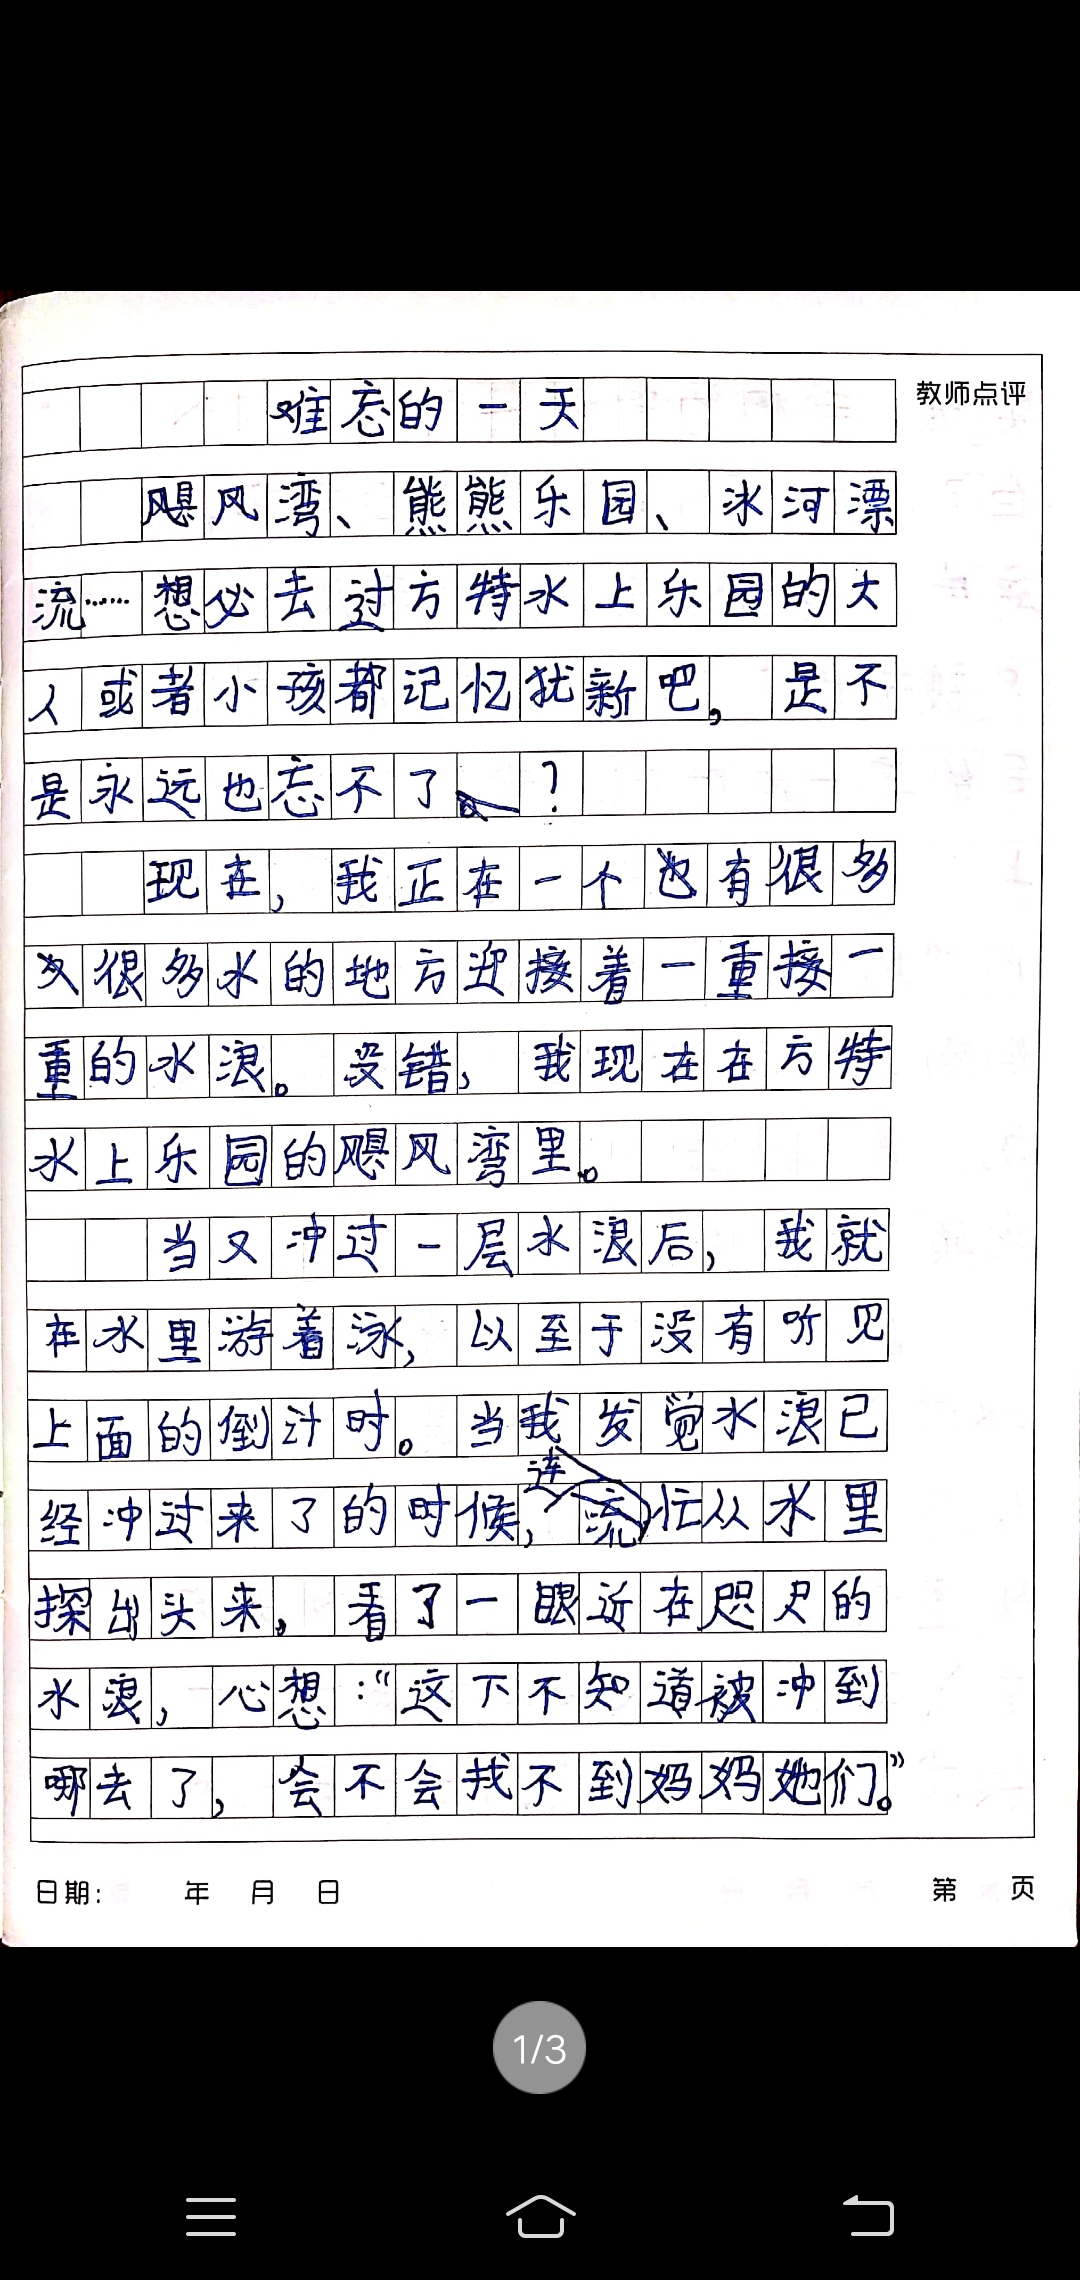 难忘的一天
教师点评
飓风湾、熊熊乐园、冰河漂
流……想必去过方特水上乐园的大
人或者小孩都记忆犹新吧，是不
是永远也忘不了？
现在，我正在一个也有很多
又很多水的地方迎接着一重接一
重的水浪。没错，我现在在方特
水上乐园的飓风湾里。
当又冲过一层水浪后，我就
在水里游着泳，以至于没有听见
上面的倒计时。当我发觉水浪已
经冲过来了的时候，连忙从水里
探出头来，看了一眼近在咫尺的
水浪，心想：“这下不知道被冲到
哪去了，会不会找不到妈妈她们。”
日期： 年 月 日
第 页
1/3